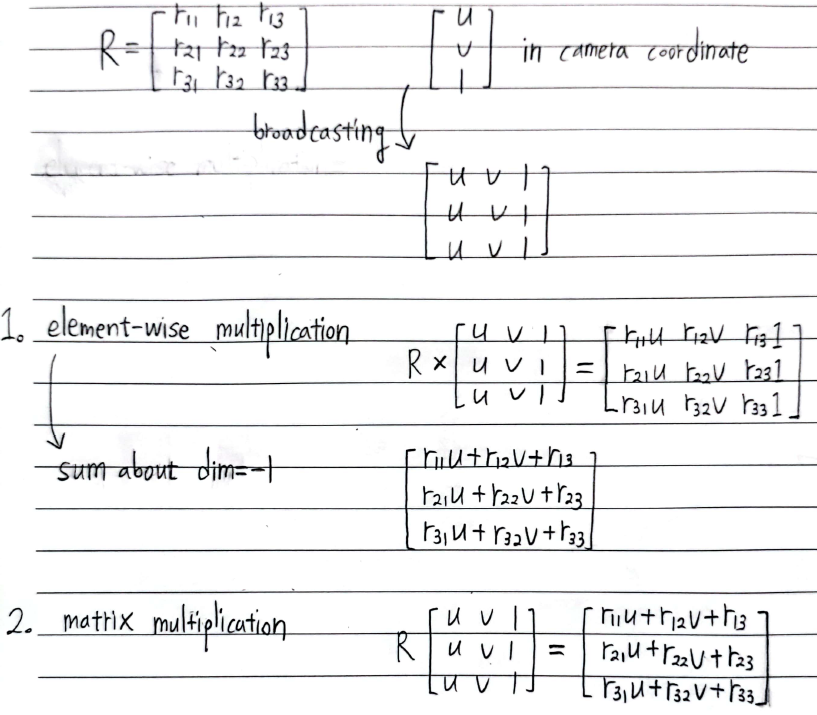 R = [ r11 r12 r13 ; r21 r22 r23 ; r31 r32 r33 ] [ u ; v ; 1 ] in camera coordinate
broadcasting
[ u v 1 ; u v 1 ; u v 1 ]
1. element-wise multiplication R × [ u v 1 ; u v 1 ; u v 1 ] = [ r11u r12v r131 ; r21u r22v r231 ; r31u r32v r331 ]
sum about dim=-1 [ r11u+r12v+r13 ; r21u+r22v+r23 ; r31u+r32v+r33 ]
2. matrix multiplication R [ u v 1 ; u v 1 ; u v 1 ] = [ r11u+r12v+r13 ; r21u+r22v+r23 ; r31u+r32v+r33 ]